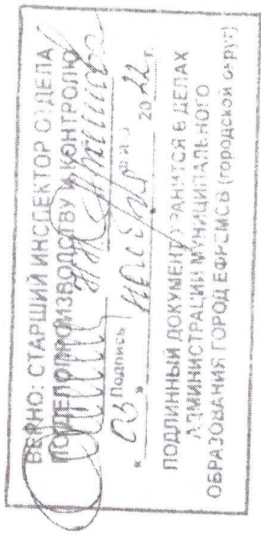 ВЕРНО: СТАРШИЙ ИНСПЕКТОР ОТДЕЛА
ПО ДЕЛОПРОИЗВОДСТВУ И КОНТРОЛЮ
Подпись
« 03 » 2022 г.
ПОДЛИННЫЙ ДОКУМЕНТ ХРАНИТСЯ В ДЕЛАХ
АДМИНИСТРАЦИИ МУНИЦИПАЛЬНОГО
ОБРАЗОВАНИЯ ГОРОД ЕФРЕМОВ (городской округ)